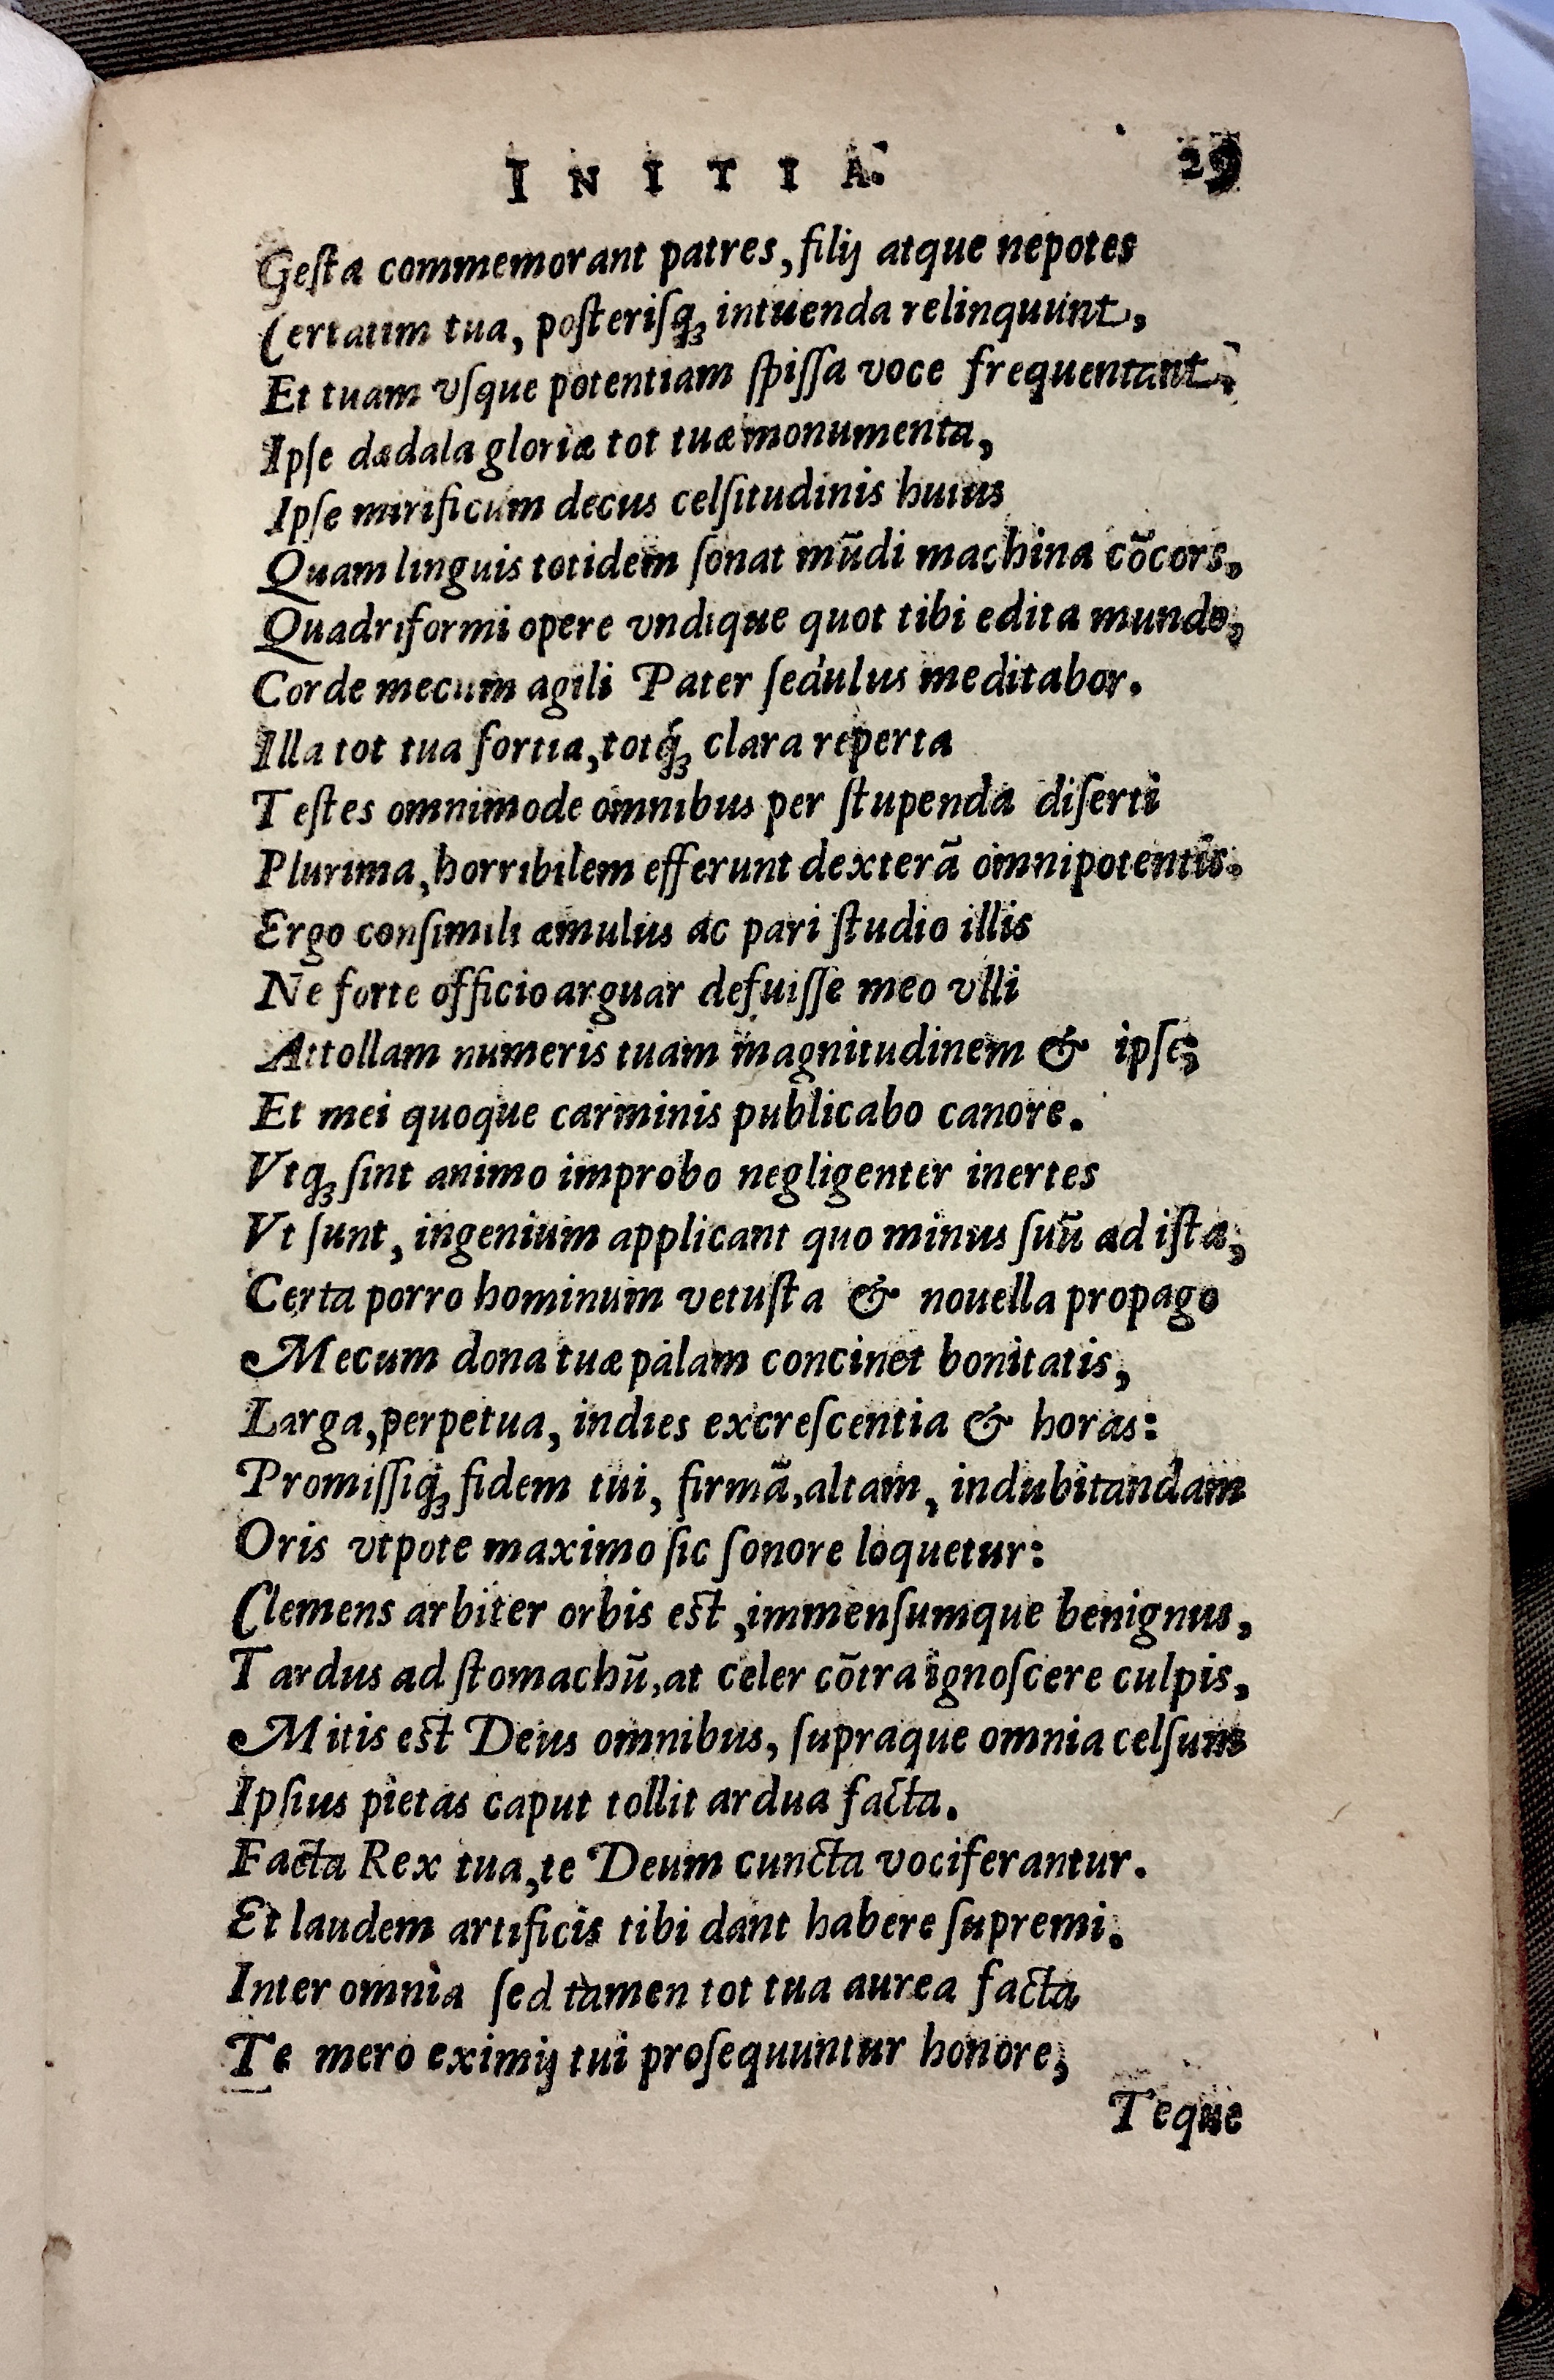 INITIA. 29
Geſta commemorant patres, filij atque nepotes
Certatim tua, poſteriſq́ꝫ intuenda relinquunt,
Et tuam vſque potentiam ſpiſſa voce frequentant.
Ipſe dædala gloriæ tot tuæ monumenta,
Ipſe mirificum decus celſitudinis huius
Quam linguis totidem ſonat mūdi machina cōcors,
Quadriformi opere vndique quot tibi edita mundo,
Corde mecum agili Pater ſedulus meditabor.
Illa tot tua fortia, totq́ꝫ clara reperta
Teſtes omnimode omnibus per ſtupenda diſerti
Plurima, horribilem efferunt dexterā omnipotentis.
Ergo conſimili æmulus ac pari ſtudio illis
Ne forte officio arguar defuiſſe meo vlli
Attollam numeris tuam magnitudinem & ipſe;
Et mei quoque carminis publicabo canore.
Vtqꝫ ſint animo improbo negligenter inertes
Vt ſunt, ingenium applicant quo minus ſuū ad iſta,
Certa porro hominum vetuſta & nouella propago
Mecum dona tuæ palam concinet bonitatis,
Larga, perpetua, indies excreſcentia & horas:
Promiſſiq́ꝫ fidem tui, firmā, altam, indubitandam
Oris vtpote maximo ſic ſonore loquetur:
Clemens arbiter orbis eſt, immenſumque benignus,
Tardus ad ſtomachū, at celer cōtra ignoſcere culpis,
Mitis eſt Deus omnibus, ſupraque omnia celſum
Ipſius pietas caput tollit ardua facta.
Facta Rex tua, te Deum cuncta vociferantur.
Et laudem artificis tibi dant habere ſupremi.
Inter omnia ſed tamen tot tua aurea facta
Te mero eximij tui proſequuntur honore;
Teque